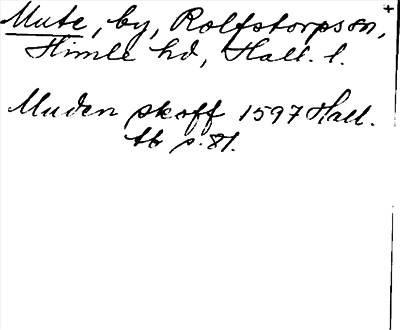 Mute, by, Rolfstorps sn,
Himle hd, Hall. l.
Muden skoff 1597 Hall.
tb s. 81.